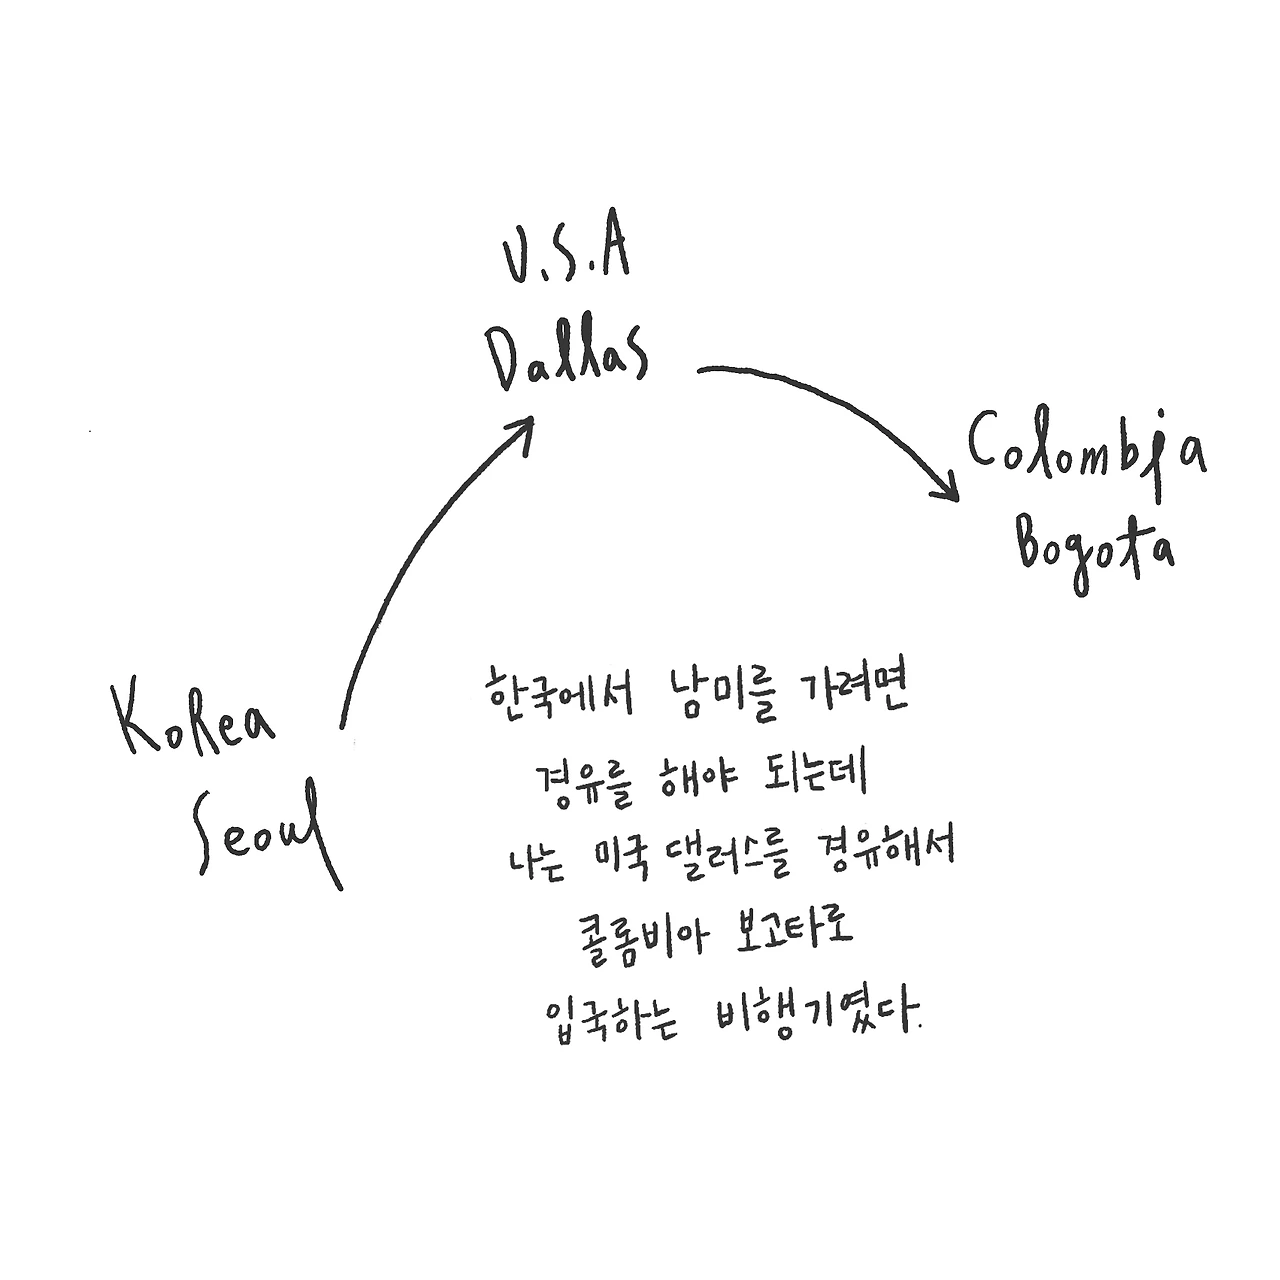 U.S.A
Dallas
Colombia
Bogota
Korea
Seoul
한국에서 남미를 가려면
경유를 해야 되는데
나는 미국 댈러스를 경유해서
콜롬비아 보고타로
입국하는 비행기였다.